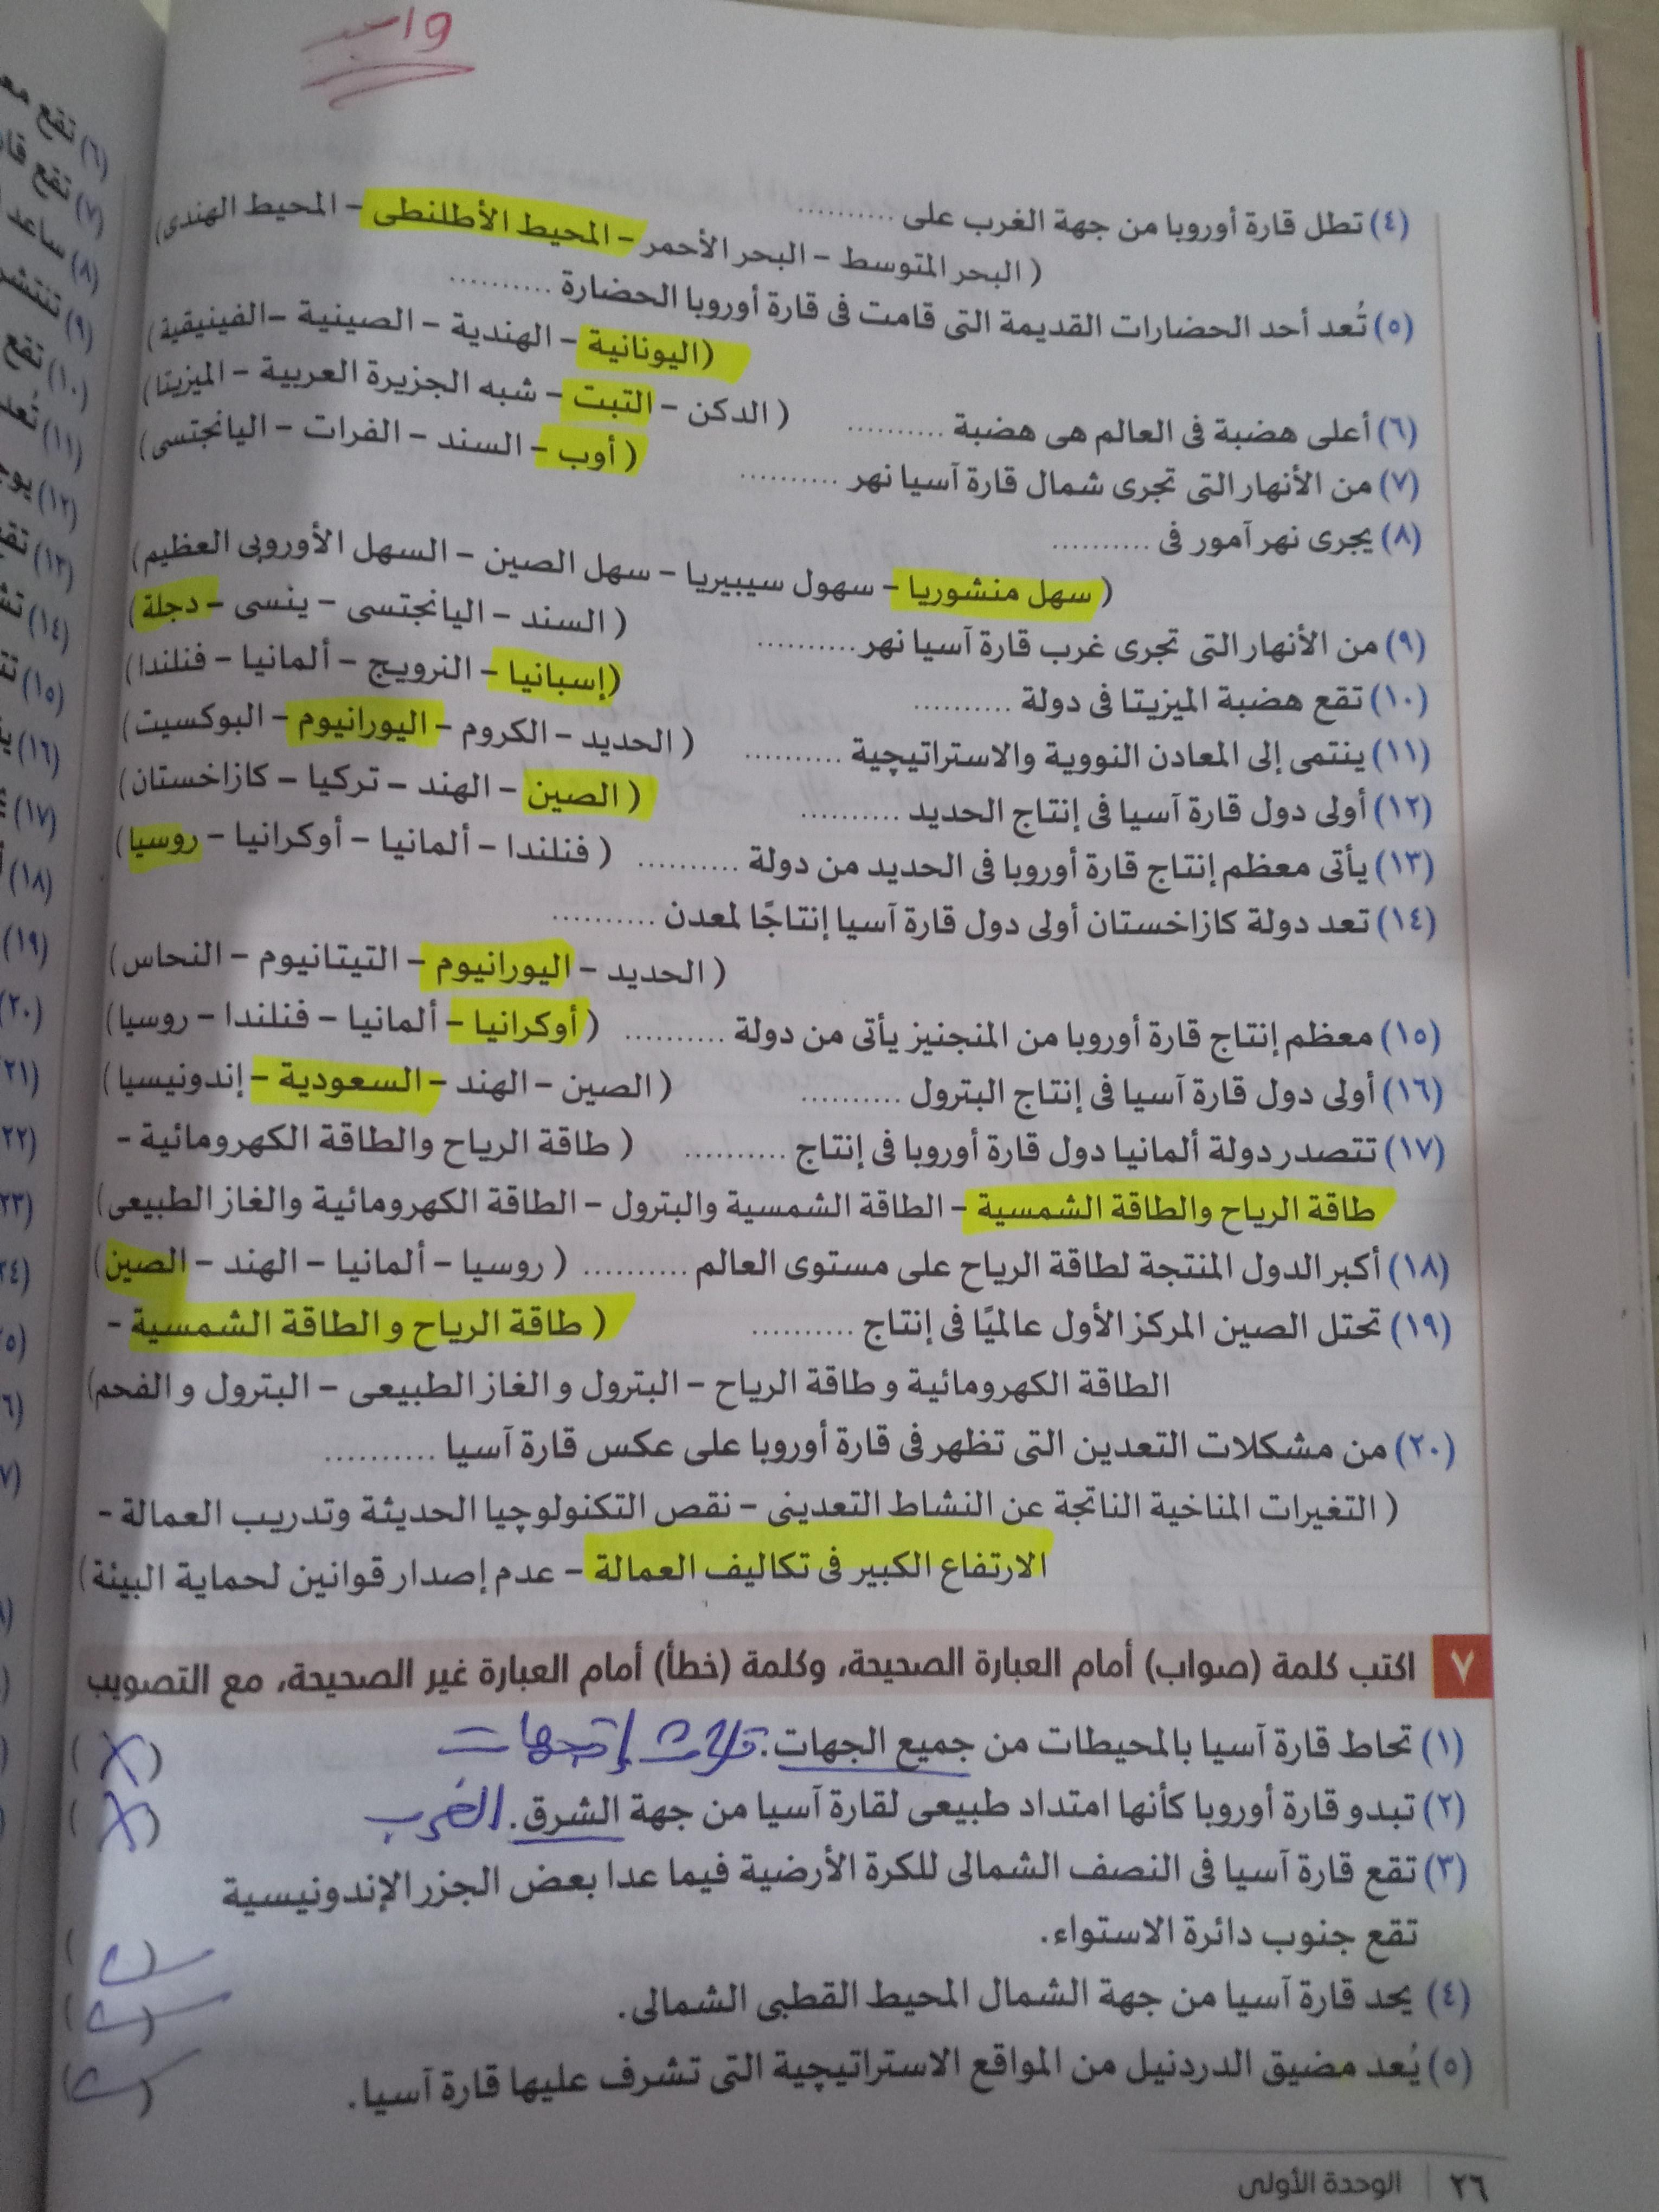 واجب
(٤) تطل قارة أوروبا من جهة الغرب على ..........
( البحر المتوسط - البحر الأحمر - المحيط الأطلنطى - المحيط الهندى)
(٥) تُعد أحد الحضارات القديمة التى قامت فى قارة أوروبا الحضارة ..........
(اليونانية - الهندية - الصينية - الفينيقية)
(٦) أعلى هضبة فى العالم هى هضبة .......... ( الدكن - التبت - شبه الجزيرة العربية - الميزيتا)
(٧) من الأنهار التى تجرى شمال قارة آسيا نهر .......... ( أوب - السند - الفرات - اليانجتسى)
(٨) يجرى نهر آمور فى ..........
( سهل منشوريا - سهول سيبيريا - سهل الصين - السهل الأوروبى العظيم)
(٩) من الأنهار التى تجرى غرب قارة آسيا نهر .......... ( السند - اليانجتسى - ينسى - دجلة)
(١٠) تقع هضبة الميزيتا فى دولة .......... (إسبانيا - النرويج - ألمانيا - فنلندا)
(١١) ينتمى إلى المعادن النووية والاستراتيچية .......... ( الحديد - الكروم - اليورانيوم - البوكسيت)
(١٢) أولى دول قارة آسيا فى إنتاج الحديد .......... ( الصين - الهند - تركيا - كازاخستان)
(١٣) يأتى معظم إنتاج قارة أوروبا فى الحديد من دولة .......... ( فنلندا - ألمانيا - أوكرانيا - روسيا)
(١٤) تعد دولة كازاخستان أولى دول قارة آسيا إنتاجًا لمعدن ..........
( الحديد - اليورانيوم - التيتانيوم - النحاس)
(١٥) معظم إنتاج قارة أوروبا من المنجنيز يأتى من دولة .......... ( أوكرانيا - ألمانيا - فنلندا - روسيا)
(١٦) أولى دول قارة آسيا فى إنتاج البترول .......... ( الصين - الهند - السعودية - إندونيسيا)
(١٧) تتصدر دولة ألمانيا دول قارة أوروبا فى إنتاج .......... ( طاقة الرياح والطاقة الكهرومائية -
طاقة الرياح والطاقة الشمسية - الطاقة الشمسية والبترول - الطاقة الكهرومائية والغاز الطبيعى)
(١٨) أكبر الدول المنتجة لطاقة الرياح على مستوى العالم .......... ( روسيا - ألمانيا - الهند - الصين)
(١٩) تحتل الصين المركز الأول عالميًا فى إنتاج .......... ( طاقة الرياح و الطاقة الشمسية -
الطاقة الكهرومائية و طاقة الرياح - البترول و الغاز الطبيعى - البترول و الفحم)
(٢٠) من مشكلات التعدين التى تظهر فى قارة أوروبا على عكس قارة آسيا ..........
( التغيرات المناخية الناتجة عن النشاط التعدينى - نقص التكنولوچيا الحديثة وتدريب العمالة -
الارتفاع الكبير فى تكاليف العمالة - عدم إصدار قوانين لحماية البيئة)
٧ اكتب كلمة (صواب) أمام العبارة الصحيحة، وكلمة (خطأ) أمام العبارة غير الصحيحة، مع التصويب
(١) تحاط قارة آسيا بالمحيطات من جميع الجهات. ثلاث إتجهات (X)
(٢) تبدو قارة أوروبا كأنها امتداد طبيعى لقارة آسيا من جهة الشرق. الغرب (X)
(٣) تقع قارة آسيا فى النصف الشمالى للكرة الأرضية فيما عدا بعض الجزر الإندونيسية
تقع جنوب دائرة الاستواء.
(٤) يحد قارة آسيا من جهة الشمال المحيط القطبى الشمالى.
(٥) يُعد مضيق الدردنيل من المواقع الاستراتيچية التى تشرف عليها قارة آسيا.
٢٦ | الوحدة الأولى